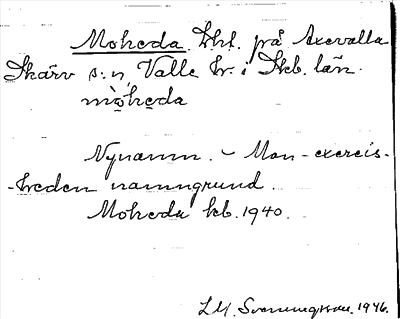 Moheda. Lht. på Axevalla
Skärv s:n, Valle hr. i Skb. län.
mo̱heda
Nynamn. – Man-exercis-
-heden namngrund.
Moheda kb. 1940.
LM. Svanungsson. 1946.